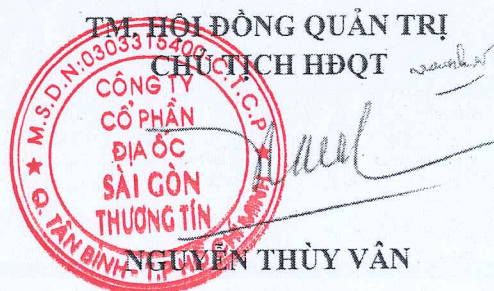 TM. HỘI ĐỒNG QUẢN TRỊ
CHỦ TỊCH HĐQT
M.S.D.N:0303315400-C.T.C.P
CÔNG TY
CỔ PHẦN
ĐỊA ỐC
SÀI GÒN
THƯƠNG TÍN
Q. TÂN BÌNH - T.P HỒ CHÍ MINH
NGUYỄN THÙY VÂN